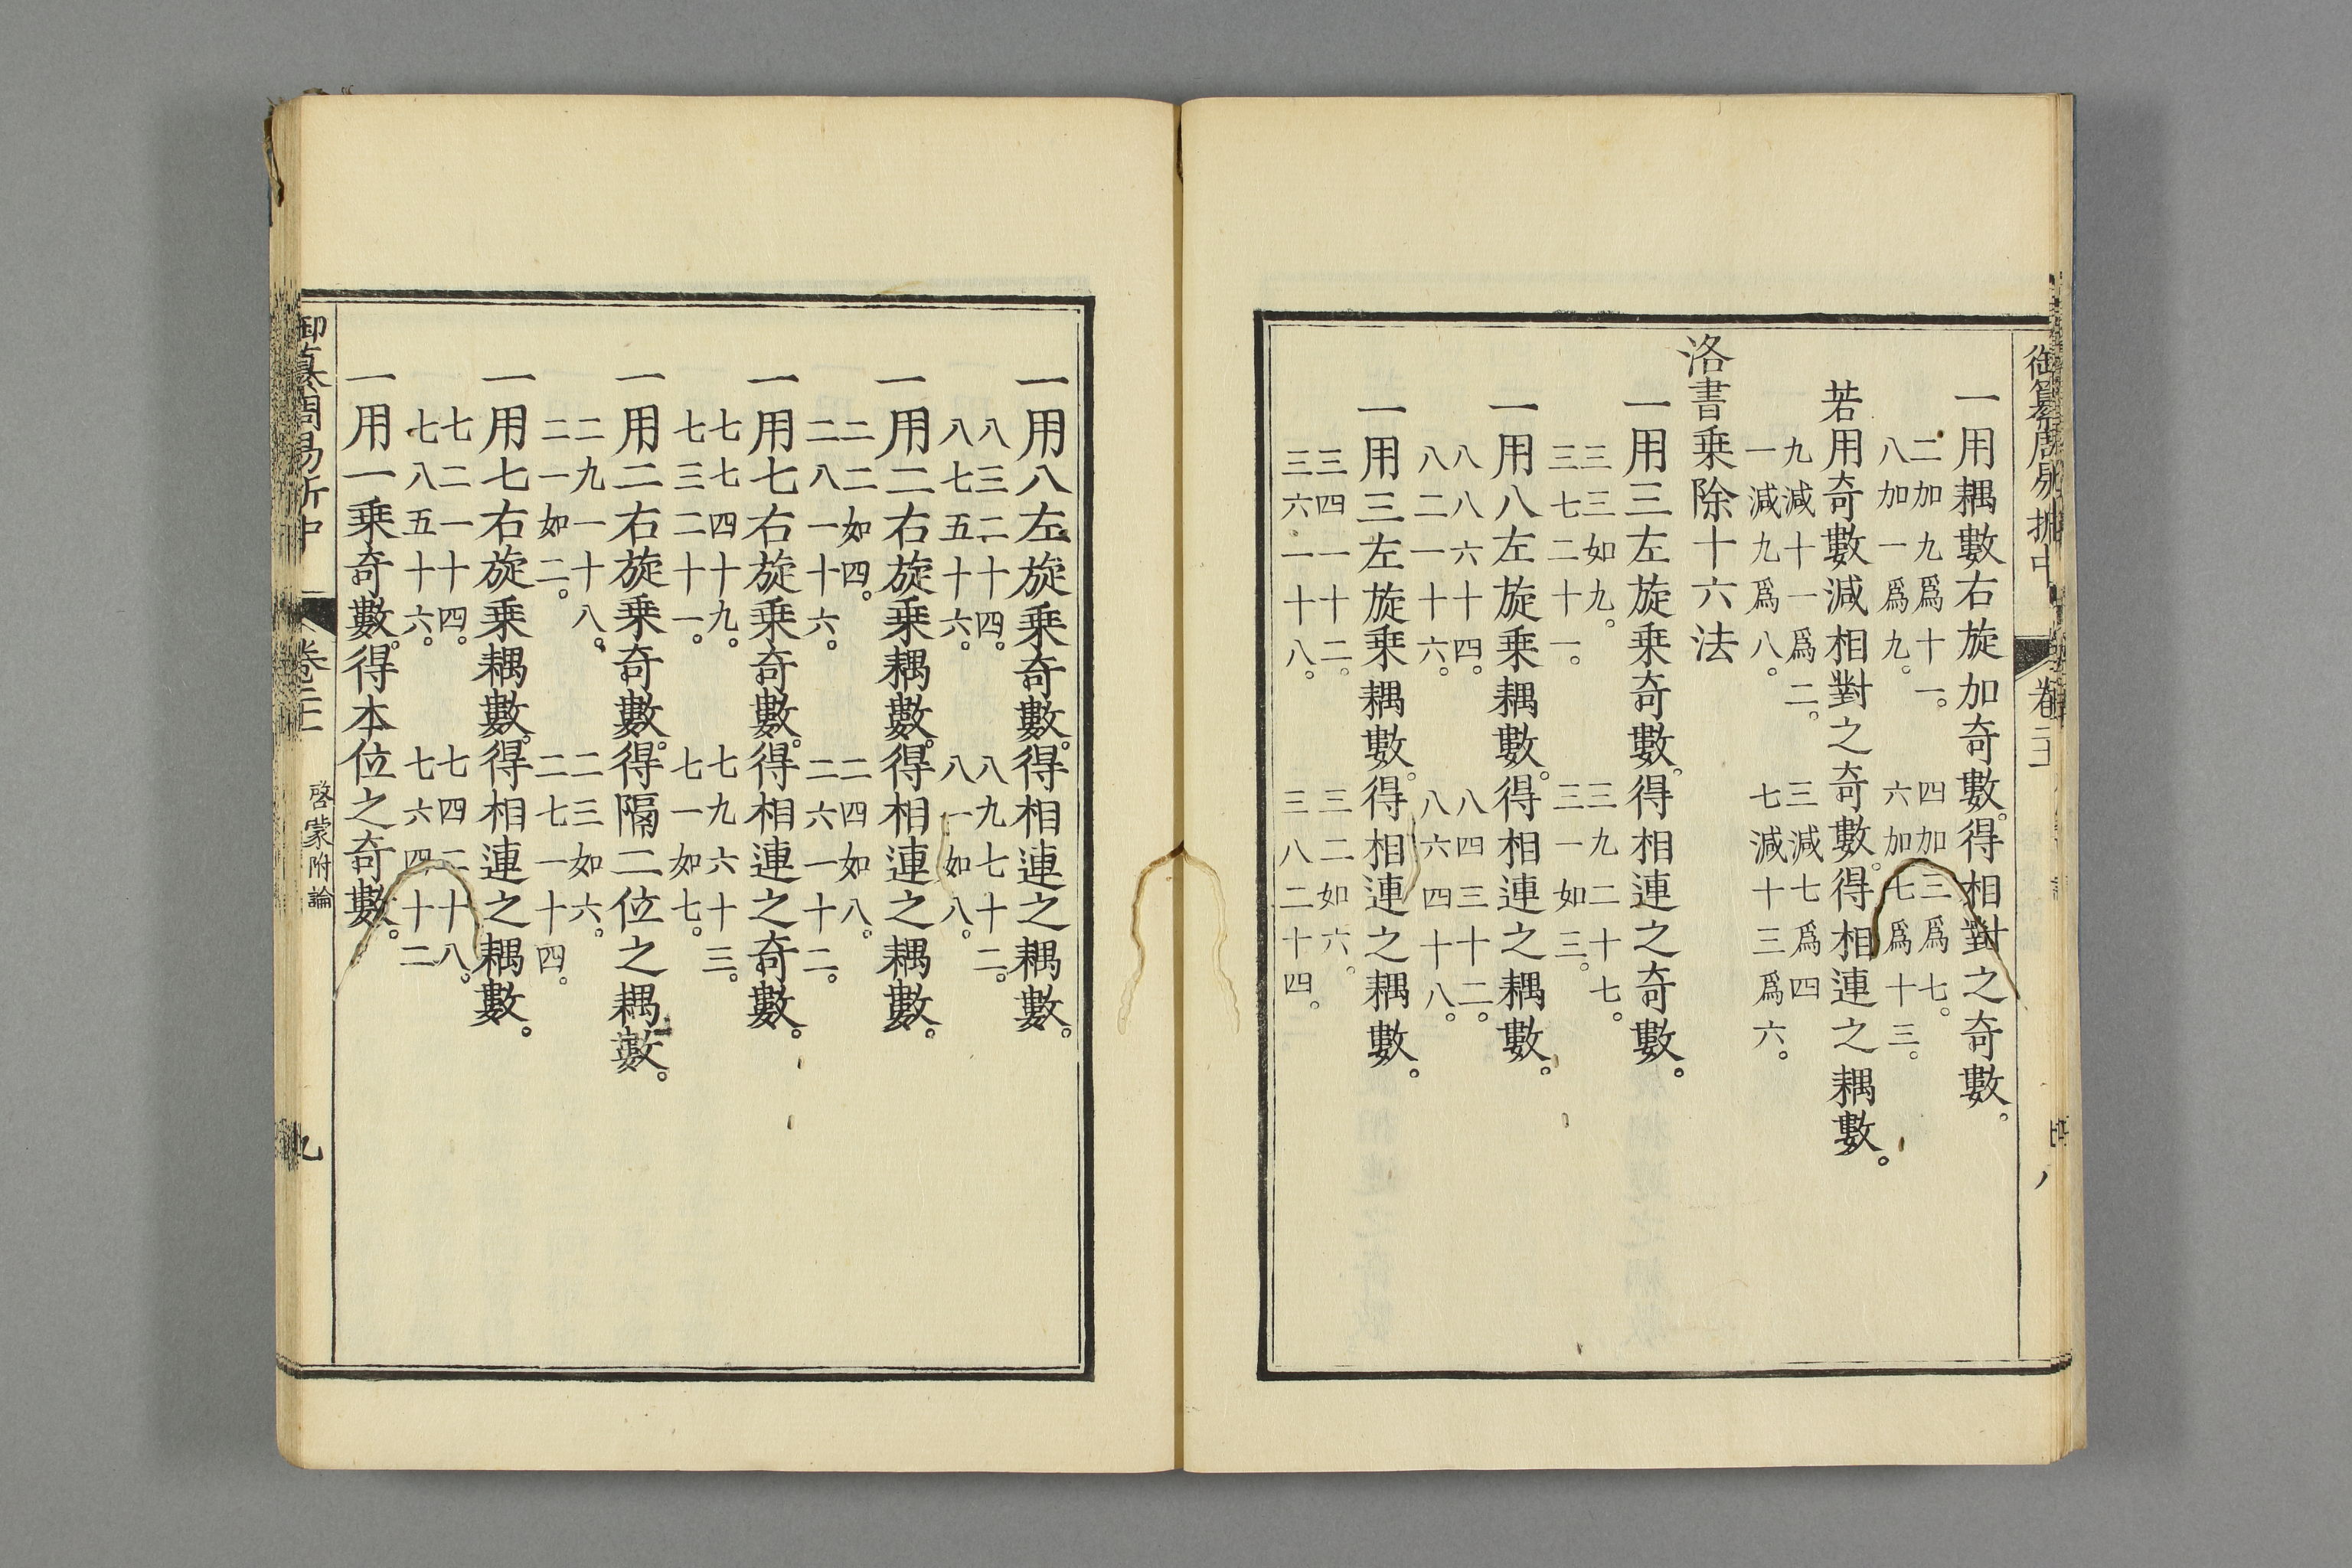 御纂周易折中 卷二十一
一用耦數右旋加奇數。得相對之奇數。
二加九爲十一。 四加三爲七。
八加一爲九。 六加七爲十三。
若用奇數減相對之奇數。得相連之耦數。
九減十一爲二。 三減七爲四
一減九爲八。 七減十三爲六。
洛書乗除十六法
一用三左旋乗奇數。得相連之奇數。
三三如九。 三九二十七。
三七二十一。 三一如三。
一用八左旋乗耦數。得相連之耦數。
八八六十四。 八四三十二。
八二一十六。 八六四十八。
一用三左旋乗耦數。得相連之耦數。
三四一十二。 三二如六。
三六一十八。 三八二十四。
一用八左旋乗奇數。得相連之耦數。
八三二十四。 八九七十二。
八七五十六。 八一如八。
一用二右旋乗耦數。得相連之耦數。
二二如四。 二四如八。
二八一十六。 二六一十二。
一用七右旋乗奇數。得相連之奇數。
七七四十九。 七九六十三。
七三二十一。 七一如七。
一用二右旋乗奇數。得隔二位之耦數。
二九一十八。 二三如六。
二一如二。 二七一十四。
一用七右旋乗耦數。得相連之耦數。
七二一十四。 七四二十八。
七八五十六。 七六四十二
一用一乗奇數。得本位之奇數。
御纂周易折中 卷二十一 啓蒙附論 九